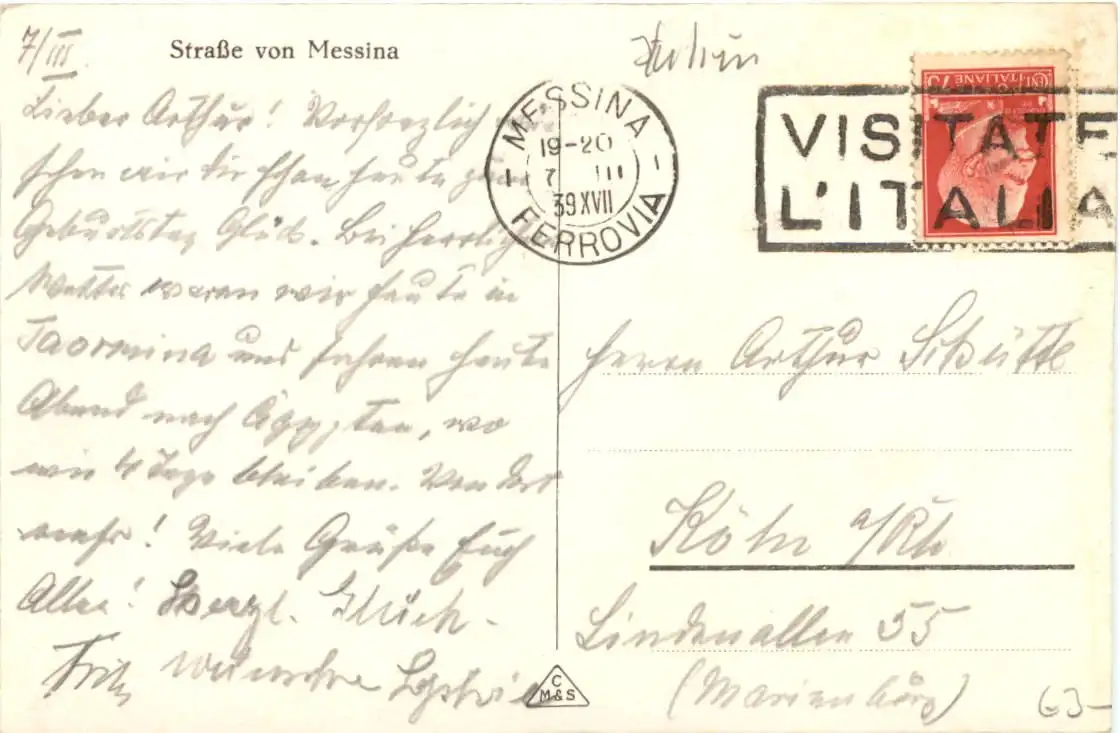 7/III.
Straße von Messina
Lieber Arthur! Vorherzlich
schen wir dir schon heute zum
Geburtstag Glück. Bei herrlichem
Wetter waren wir heute in
Taormina und fahren heute
Abend nach Ägypten, wo
wir 4 Tage bleiben. Von dort
mehr! Viele Grüße Euch
Allen! Herzl. Glück-
Fritz wünsche
MESSINA
19-20
7 III
39 XVII
FERROVIA
VISITATE
L'ITALIA
CENT. 75
ITALIANE
Herrn Arthur Schütte
Köln a/Rh.
Lindenallee 55
(Marienburg)
C
M&S
63-